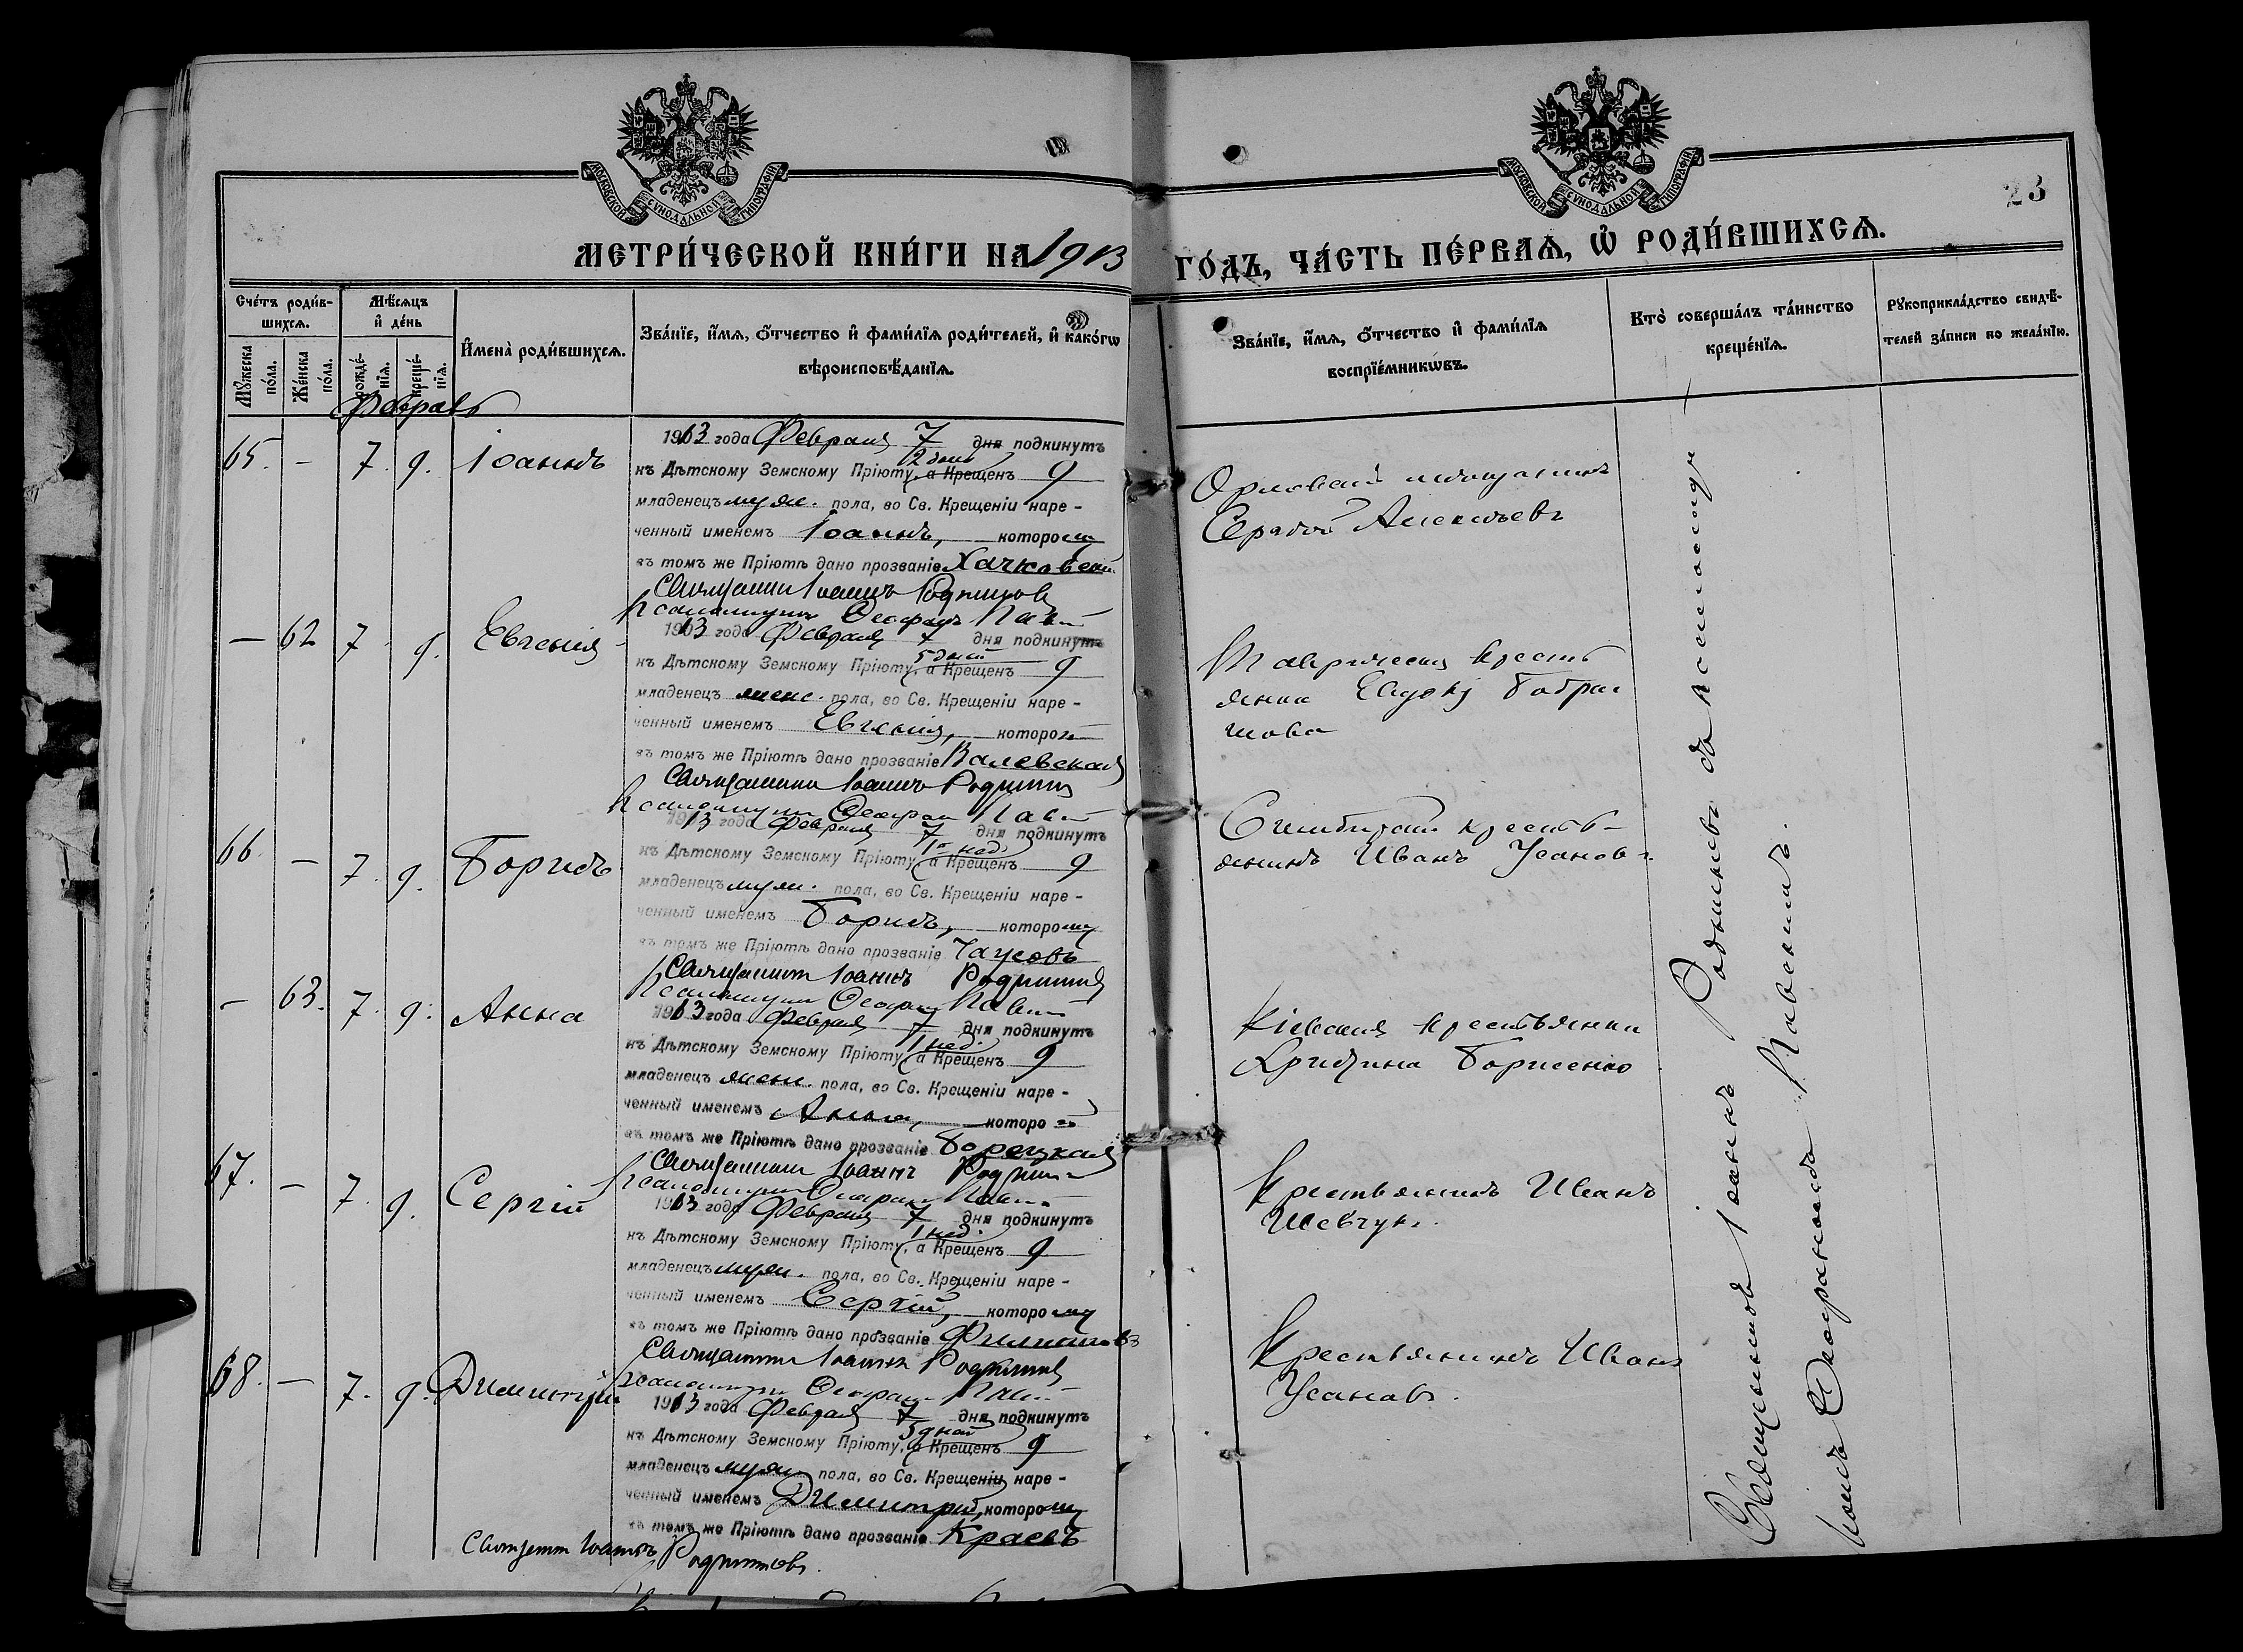 МОСКОВСКОЙ СѴНОДАЛЬНОЙ ТИПОГРАФІИ
МОСКОВСКОЙ СѴНОДАЛЬНОЙ ТИПОГРАФІИ
23
МЕТРИ́ЧЕСКОЙ КНИ́ГИ НА 1913 ГО́ДЪ, ЧА́СТЬ ПЕ́РВАѦ, Ѡ҆ РОДИ́ВШИХСѦ.
Сче́тъ роди́в-
шихсѧ.
Мѣ́сѧцъ
и҆ де́нь
Мꙋ́жеска
по́ла.
Же́нска
по́ла.
рожде́-
нїѧ.
креще́-
нїѧ.
И҆мена̀ роди́вшихсѧ.
Зва́нїе, и҆́мѧ, ѻ҆́тчество и҆ фами́лїѧ роди́телей, и҆ како́гѡ
вѣроисповѣ́данїѧ.
Зва́нїе, и҆́мѧ, ѻ҆́тчество и҆ фами́лїѧ
воспрїе́мникѡвъ.
Кто̀ соверша́лъ та́инство
креще́нїѧ.
Рꙋкоприкла́дство свидѣ́-
телей за́писи по жела́нїю.
Февраль
65. – 7. 9. Іоаннъ
1913 года Февраля 7 дня подкинутъ
къ Дѣтскому Земскому Пріюту, 2 дней а Крещенъ 9
младенецъ муж. пола, во Св. Крещеніи наре-
ченный именемъ Іоаннъ, которому
въ томъ же Пріютѣ дано прозваніе Хачковскій
Священникъ Іоаннъ Родниковъ
Псаломщикъ
Орловскій мѣщанинъ
Сергѣй Алексѣевъ
– 62 7 9. Евгенія
1913 года Февраля 7 дня подкинутъ
къ Дѣтскому Земскому Пріюту, 5 дней а Крещенъ 9
младенецъ женс. пола, во Св. Крещеніи наре-
ченный именемъ Евгенія, которой
въ томъ же Пріютѣ дано прозваніе Валевская
Священникъ Іоаннъ
Псаломщикъ
Таврическая крестъ
янка
66. – 7. 9. Борисъ
1913 года Февраля 7 дня подкинутъ
къ Дѣтскому Земскому Пріюту, 1 нед. а Крещенъ 9
младенецъ муж. пола, во Св. Крещеніи наре-
ченный именемъ Борисъ, которому
въ томъ же Пріютѣ дано прозваніе Чаусовъ
Священникъ Іоаннъ
Псаломщикъ
Симбирскій кресть-
янинъ Иванъ Усановъ
– 63. 7. 9. Анна
1913 года Февраля 7 дня подкинутъ
къ Дѣтскому Земскому Пріюту, 1 нед. а Крещенъ 9
младенецъ женс. пола, во Св. Крещеніи наре-
ченный именемъ Анна, которой
въ томъ же Пріютѣ дано прозваніе Борецкая
Священникъ Іоаннъ
Псаломщикъ
Кіевская крестьянка
Христина Борисенко
67. – 7. 9. Сергій
1913 года Февраля 7 дня подкинутъ
къ Дѣтскому Земскому Пріюту, 1 нед. а Крещенъ 9
младенецъ муж. пола, во Св. Крещеніи наре-
ченный именемъ Сергій, которому
въ томъ же Пріютѣ дано прозваніе
Священникъ Іоаннъ
Псаломщикъ
Крестьянинъ Иванъ
Шевчукъ.
68. – 7. 9. Димитрій
1913 года Февраля 7 дня подкинутъ
къ Дѣтскому Земскому Пріюту, 5 дней а Крещенъ 9
младенецъ муж. пола, во Св. Крещеніи наре-
ченный именемъ Димитрій, которому
въ томъ же Пріютѣ дано прозваніе Краевъ
Крестьянинъ Иванъ
Усановъ.
Священникъ Іоаннъ
Священникъ Іоаннъ съ псаломщи-
комъ